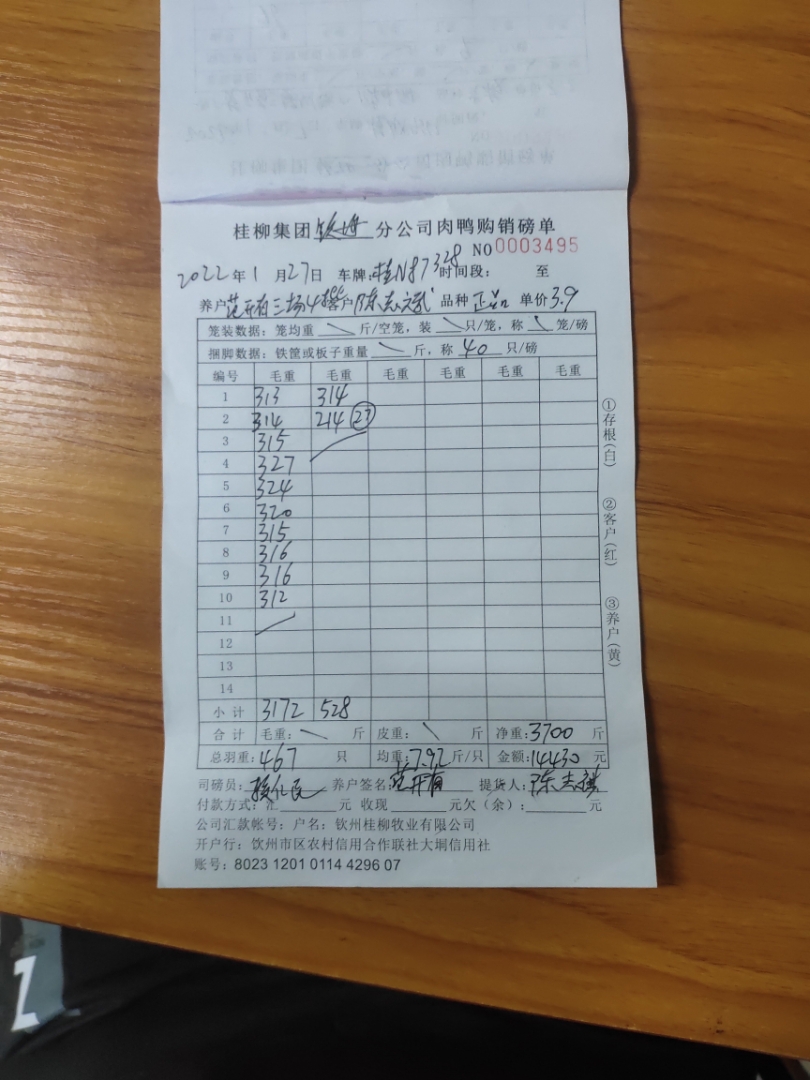 桂柳集团钦海分公司肉鸭购销磅单
NO 0003495
2022年1月27日 车牌:桂N87328 时间段: 至
养户 范开有三场4栋 客户 陈志 品种 正品 单价 3.9
笼装数据: 笼均重 \ 斤/空笼, 装 \ 只/笼, 称 \ 笼/磅
捆脚数据: 铁筐或板子重量 \ 斤, 称 40 只/磅
编号 毛重 毛重 毛重 毛重 毛重 毛重
1 313 314
2 314 214 (23)
3 315
4 327
5 324
6 320
7 315
8 316
9 316
10 312
11
12
13
14
小计 3172 528
合计 毛重: \ 斤 皮重: \ 斤 净重:3700 斤
总羽重:467 只 均重:7.92斤/只 金额:14430元
司磅员: 养户签名:范开有 提货人:陈志
付款方式:汇 元 收现 元欠(余): 元
公司汇款帐号: 户名: 钦州桂柳牧业有限公司
开户行: 饮州市区农村信用合作联社大垌信用社
账号: 8023 1201 0114 4296 07
①存根(白)
②客户(红)
③养户(黄)
Z